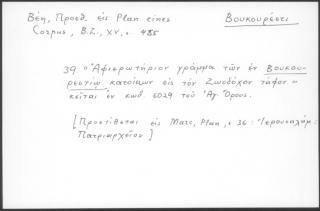 Βέη, Προσθ. εἰς Plan eines
Βουκουρέστι
Corpus, B.Z., XV, σ. 485
39 "Ἀφιερωτήριον γράμμα τῶν ἐν Βουκου-
ρεστίῳ κατοίκων εἰς τὸν Ζωοδόχον τάφον"
κεῖται ἐν κωδ. 6029 τοῦ Ἁγ. Ὄρους.
[Προστίθεται εἰς Marc, Plan, σ 36: Ἱερουσαλήμ:
Πατριαρχεῖον]